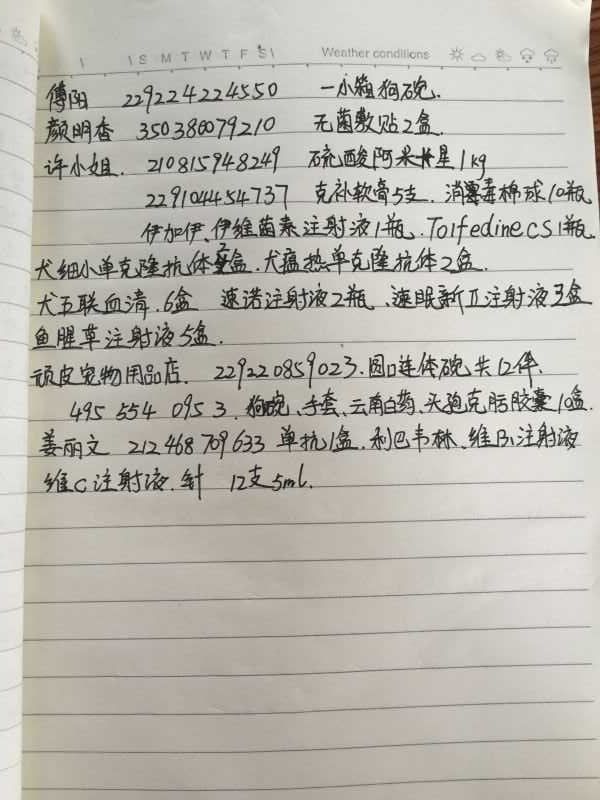 I I S M T W T F S I Weather conditions
傅阳 229224224550 一小箱狗碗.
颜明香 350380079210 无菌敷贴2盒.
许小姐. 210815948249 硫酸阿米卡星1kg
229104454737 克补软膏5支. 消毒棉球10瓶
伊加伊、伊维菌素注射液1瓶. Tolfedine CS 1瓶.
犬细小单克隆抗体2盒. 犬瘟热单克隆抗体2盒.
犬五联血清.6盒 速诺注射液2瓶、速眠新Ⅱ注射液3盒
鱼腥草注射液5盒.
顽皮宠物用品店. 229220859023. 圆口连体碗共12件.
495 554 095 3. 狗碗、手套、云南白药、头孢克肟胶囊10盒.
姜丽文 212468709633 单抗1盒.利巴韦林、维B1注射液
维C注射液.针 12支5ml.